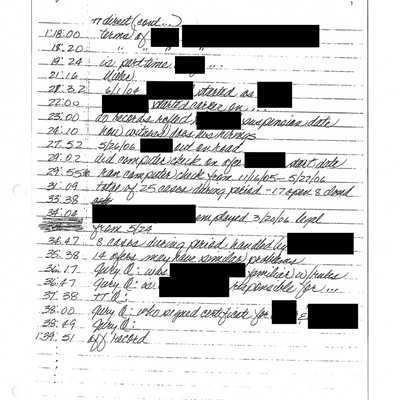 π direct (cond...)
1:18:00 terms of
18:20 " " " "
19:24 is part time
21:16 Make
21:32 6/1/04 started as
22:00 started career on ..
23:00 do records reflect suspension date
24:10 how witness does his hirings
27:52 5/26/06 out on road
28:02 did computer check on ofcr start date
29:55 ran computer check from 11/6/05-5/27/06
31:09 total of 25 cases during period - 17 open 8 closed
33:38
34:04 employed 3/20/06 legal
from 5/24
34:47 8 cases during period handled by
35:38 14 ofcrs may have similar problems
36:17 Jury Q: was familiar w/rules
36:47 Jury Q: is responsible for ...
37:38 π Q:
38:00 Jury Q: who signed certificate for &
38:49 Jury Q:
1:39:51 off record